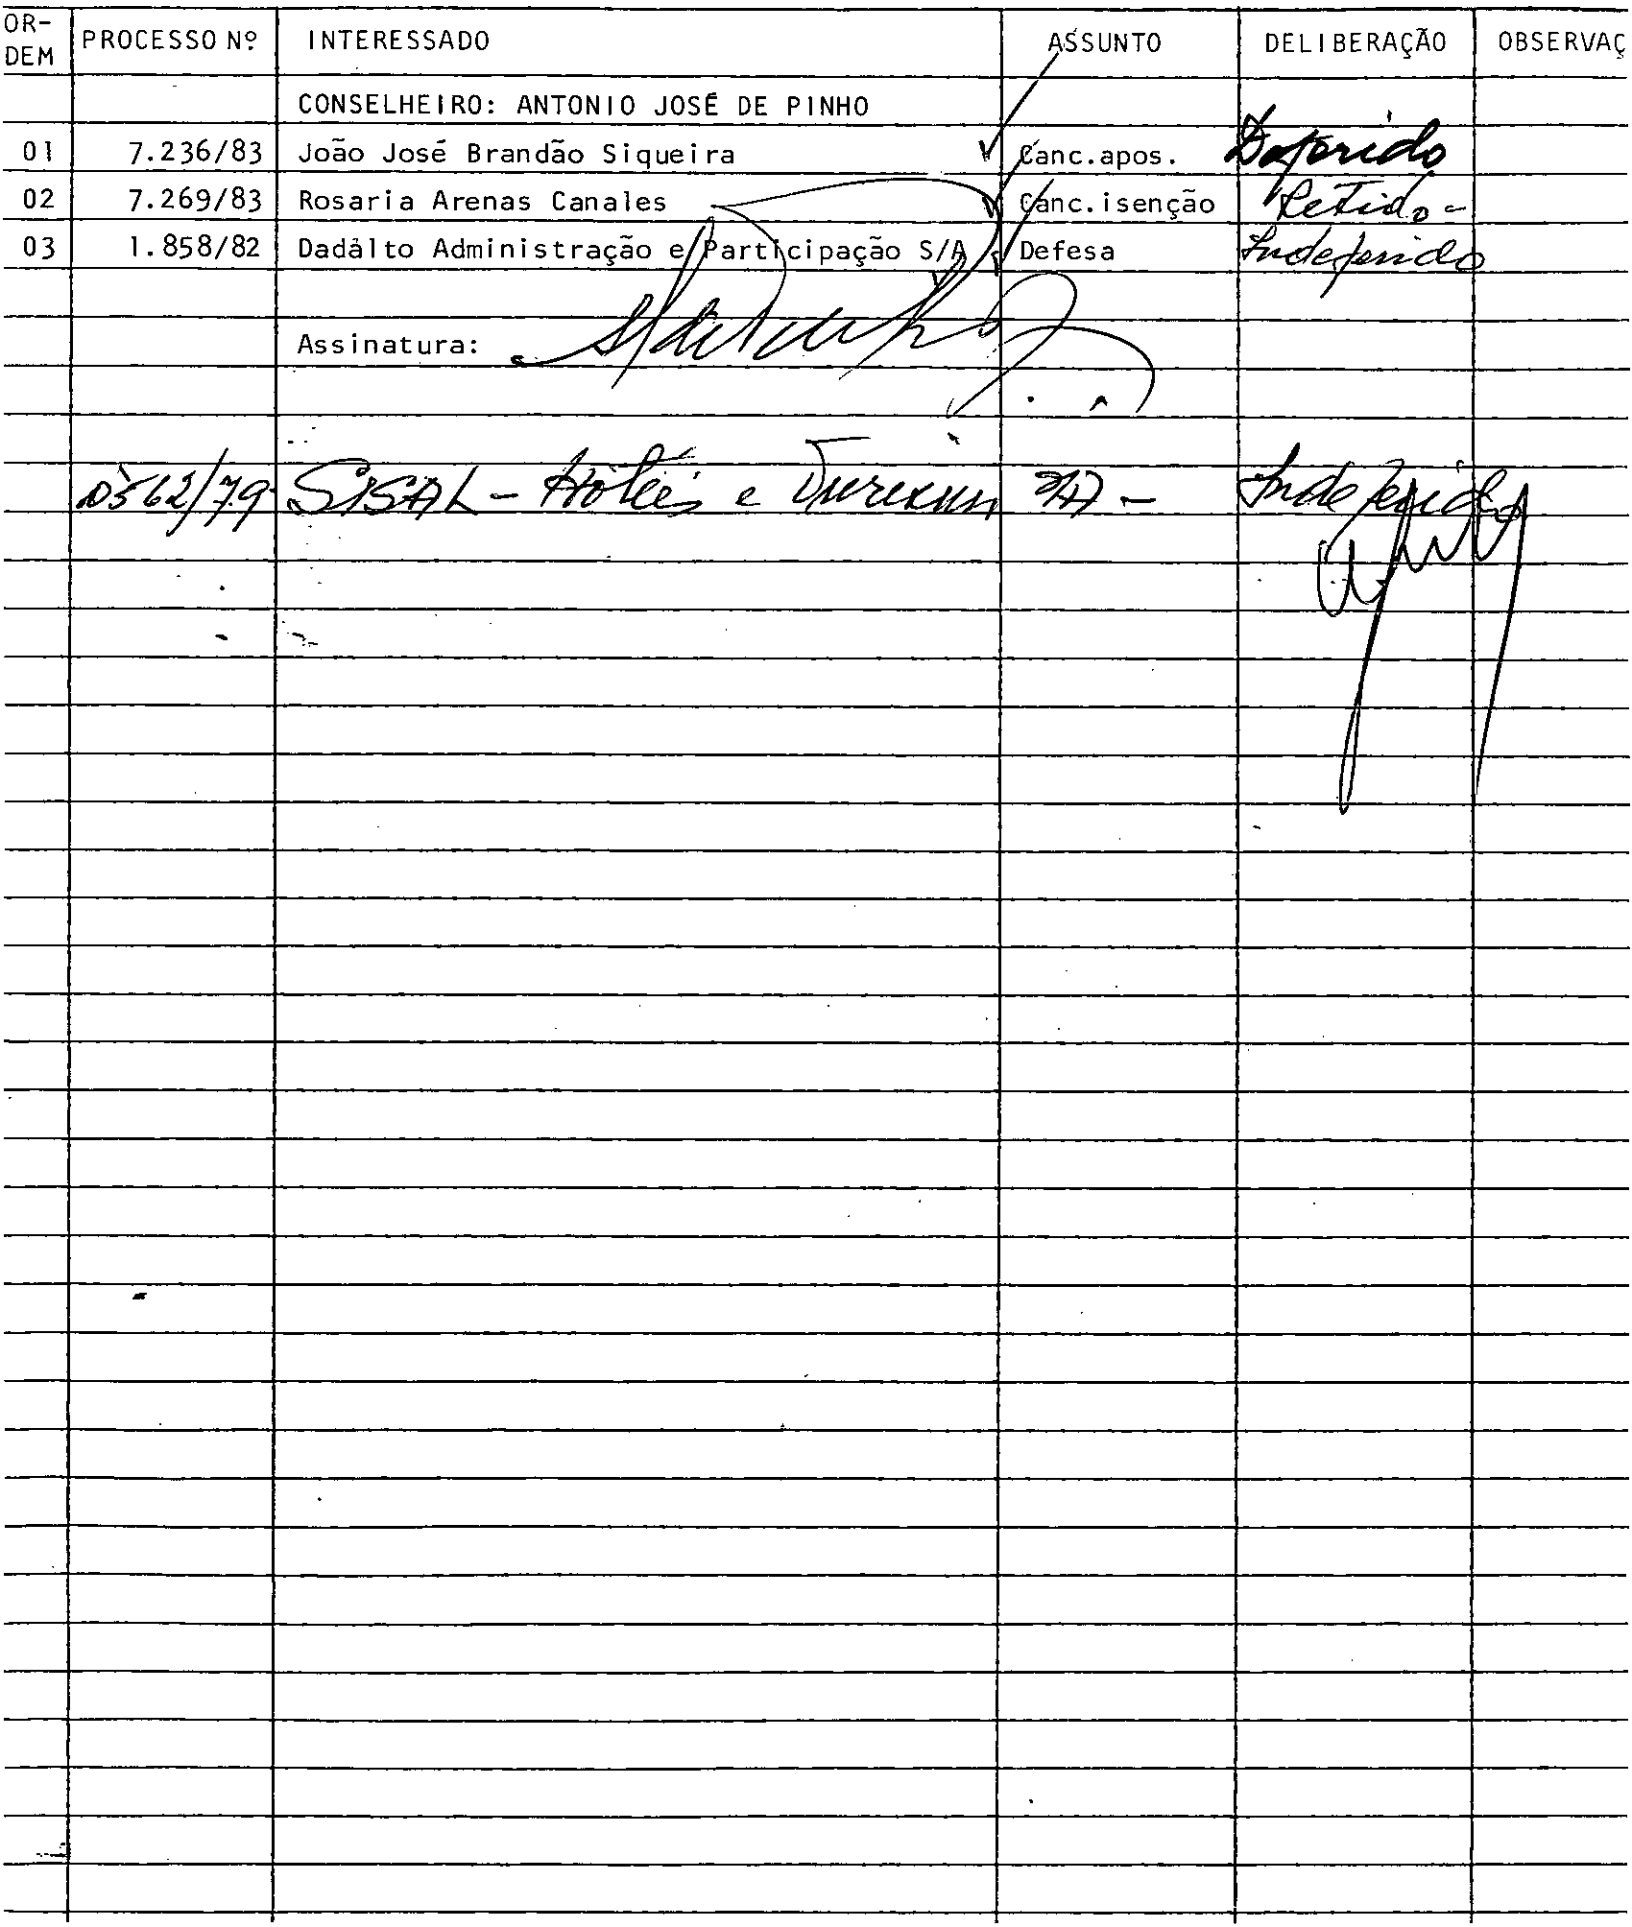 OR-
DEM PROCESSO Nº INTERESSADO ASSUNTO DELIBERAÇÃO OBSERVAÇ
CONSELHEIRO: ANTONIO JOSÉ DE PINHO
01 7.236/83 João José Brandão Siqueira Canc.apos. Deferido
02 7.269/83 Rosaria Arenas Canales Canc.isenção Retido-
03 1.858/82 Dadálto Administração e Participação S/A Defesa Indeferido
Assinatura:
0562/79 SISAL - Hotéis e Turismo S/A - Indeferido